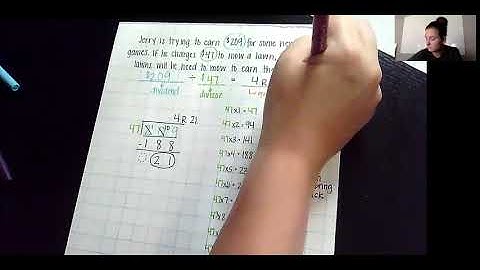 Jerry is trying to earn $209 for some new
games. If he charges $47 to mow a lawn,
lawns will he need to mow to earn the
$209 ÷ $47 = 4 R
dividend divisor
4 R 21
47
- 1 8 8
2 1
47x1 = 47
47x2 = 94
47x3 = 141
47x4 = 188
47x5 = 2
47x6 = 2
47x7 =
47x8
47x
47